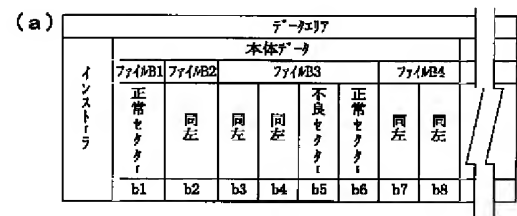 (a)
データエリア
本体データ
インストーラ
ファイルB1 ファイルB2 ファイルB3 ファイルB4
正常セクター 同左 同左 同左 不良セクター 正常セクター 同左 同左
b1 b2 b3 b4 b5 b6 b7 b8